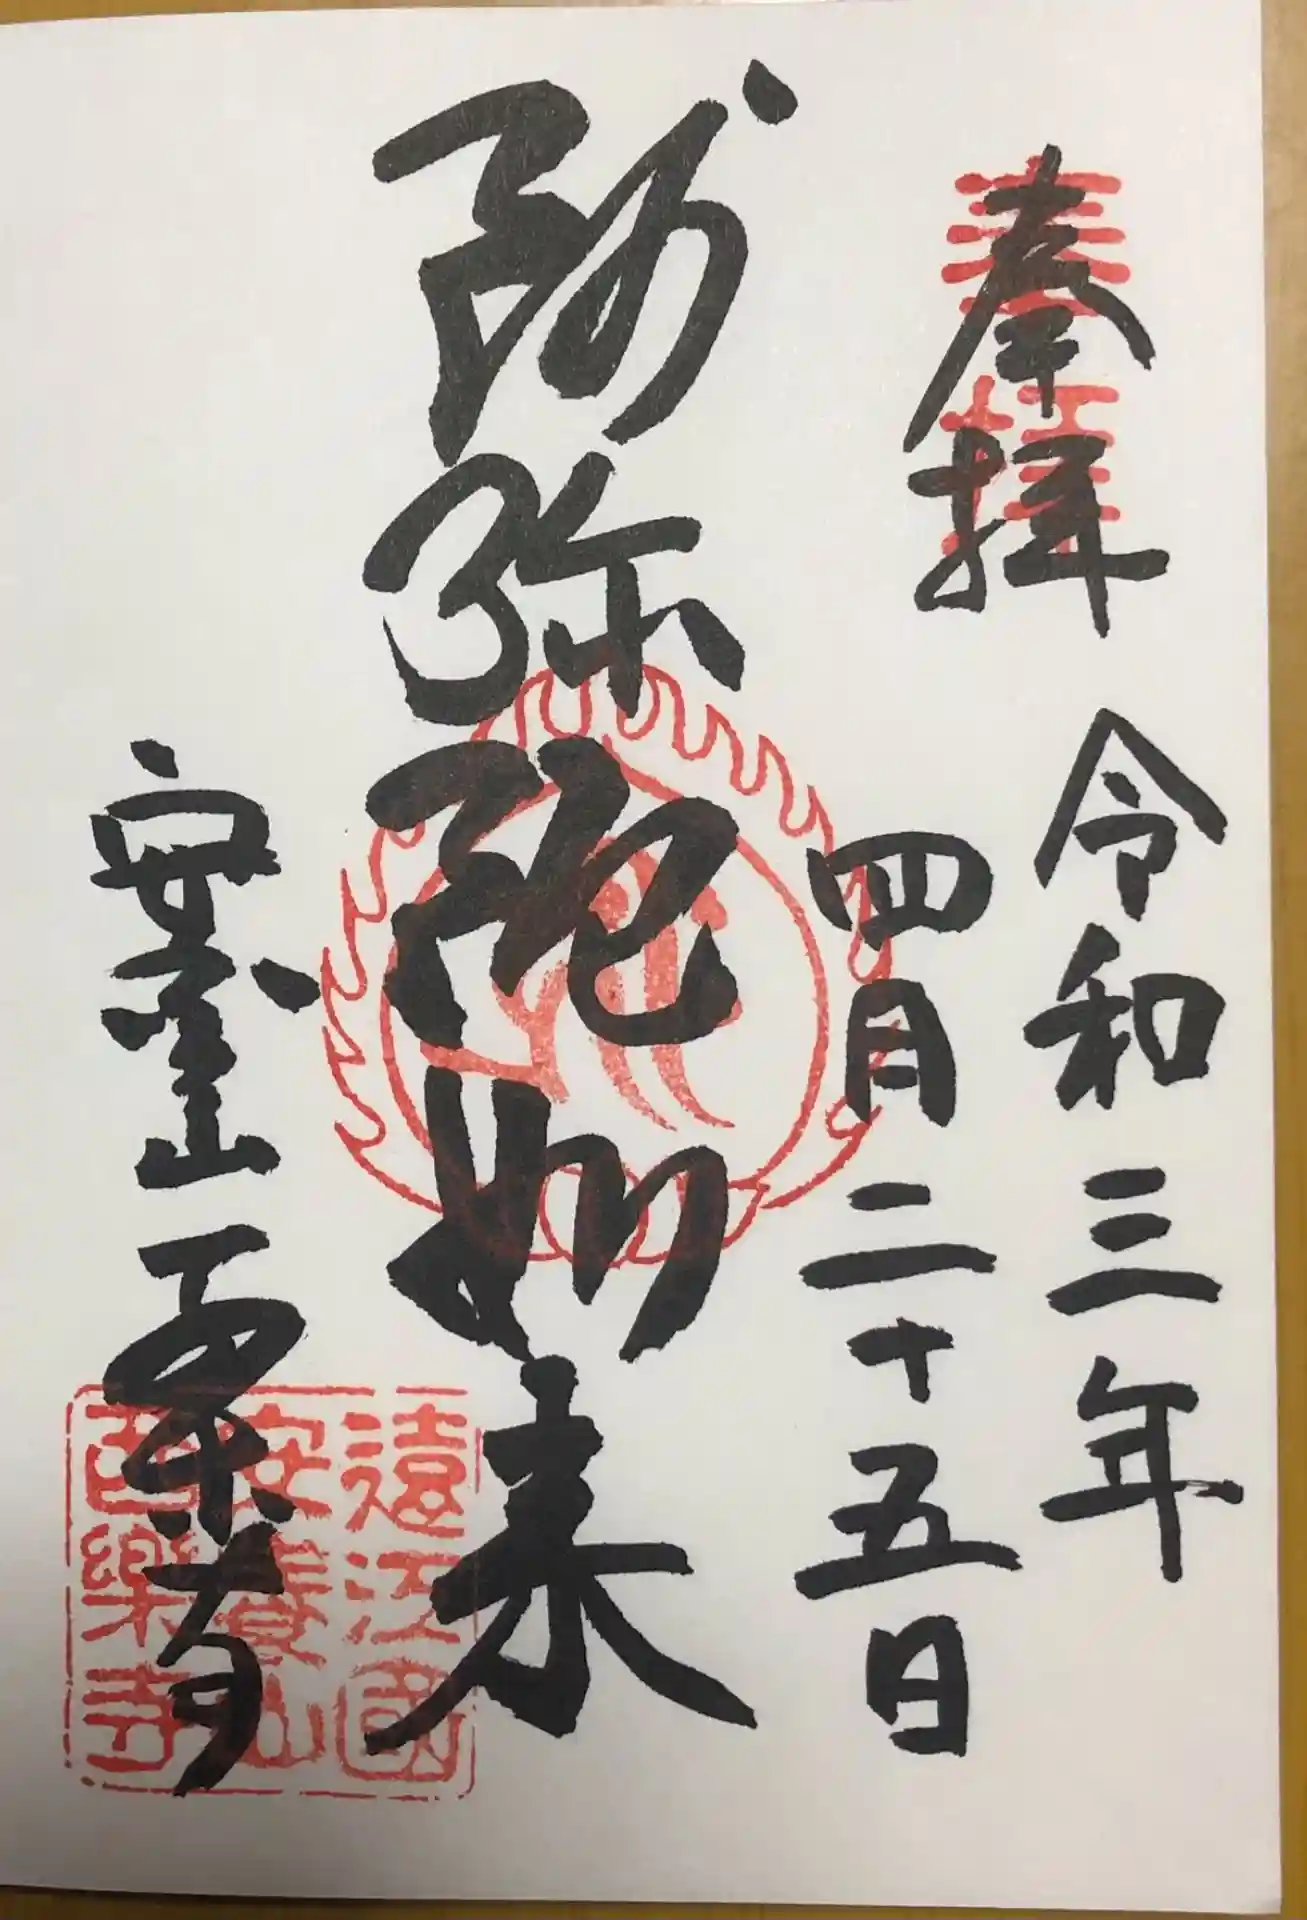 奉拝
令和三年
四月二十五日
阿弥陀如来
安養山西楽寺
奉拝
遠江國
安養山
西樂寺